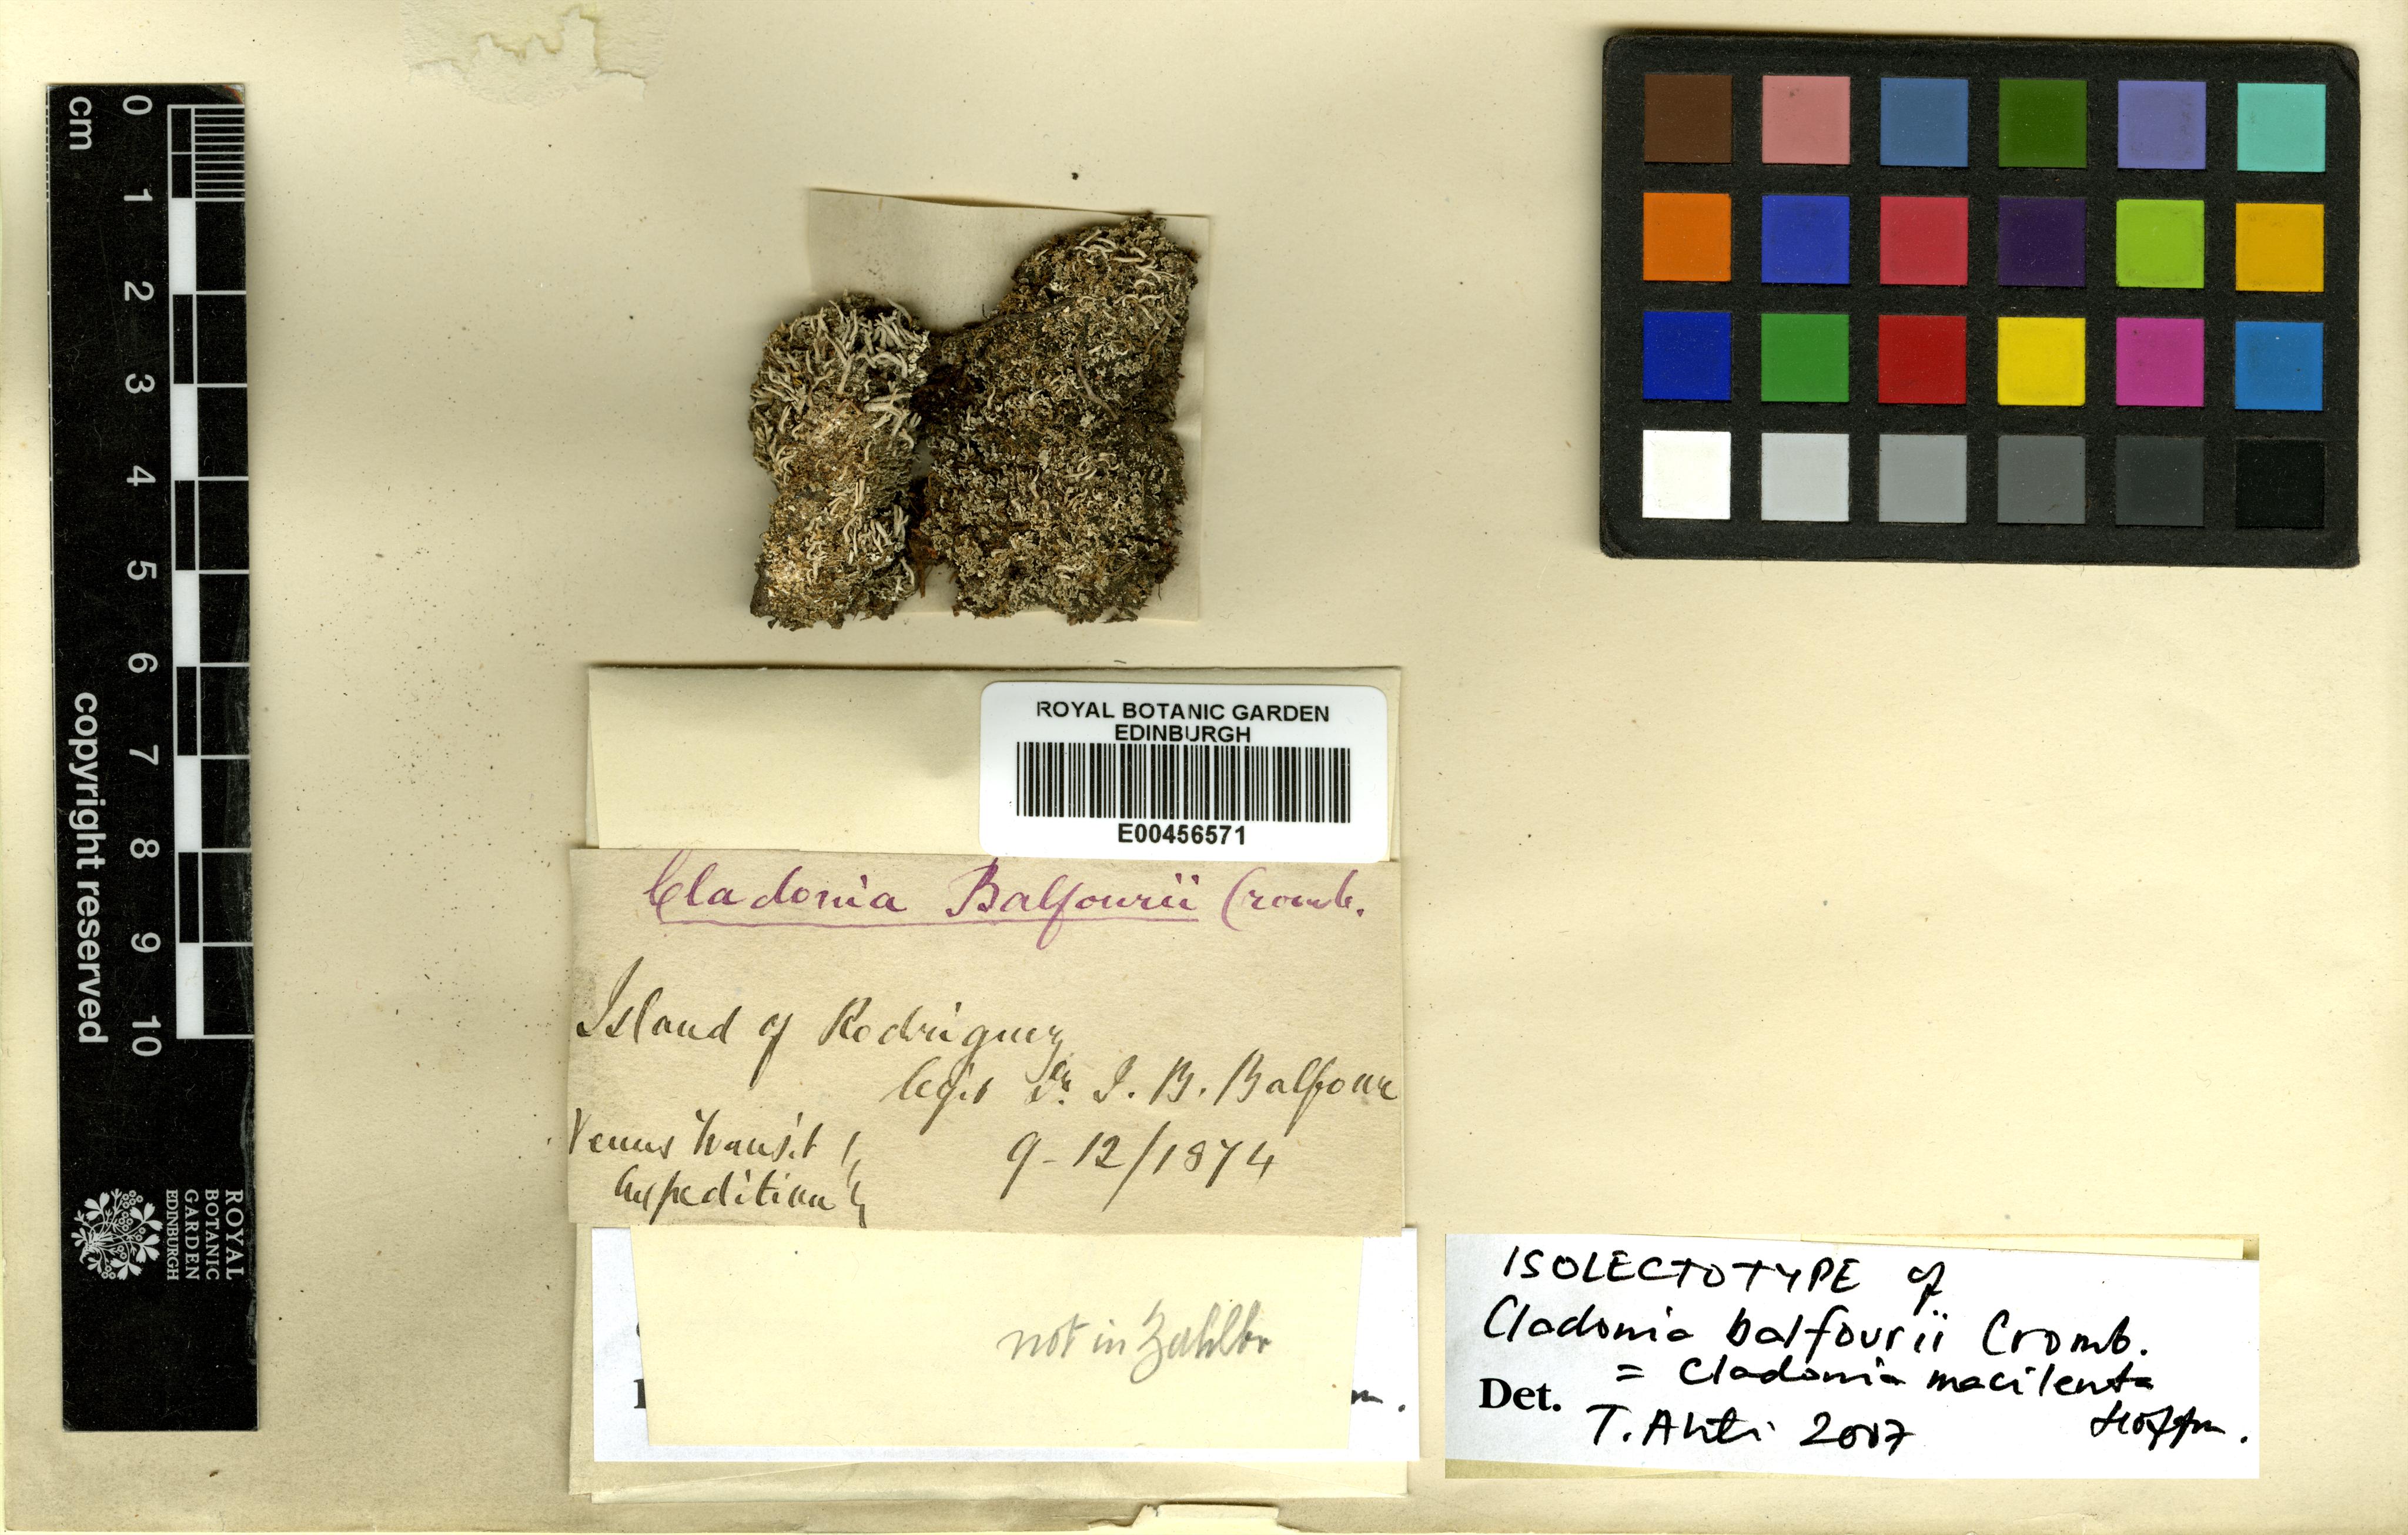 cm
0
1
2
3
4
5
6
7
8
9
10
copyright reserved
ROYAL
BOTANIC
GARDEN
EDINBURGH
ROYAL BOTANIC GARDEN
EDINBURGH
E00456571
Cladonia Balfourii Cromb.
Island of Rodriguez
legit Dr. I. B. Balfour
Venus Transit
Expedition
9-12/1874
not in Zahlbr
ISOLECTOTYPE of
Cladonia balfourii Cromb.
= Cladonia macilenta
Hoffm.
Det. T. Ahti 2007